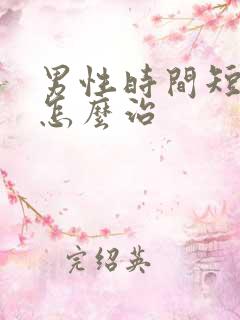 男性時間短
怎麼治
完紹英